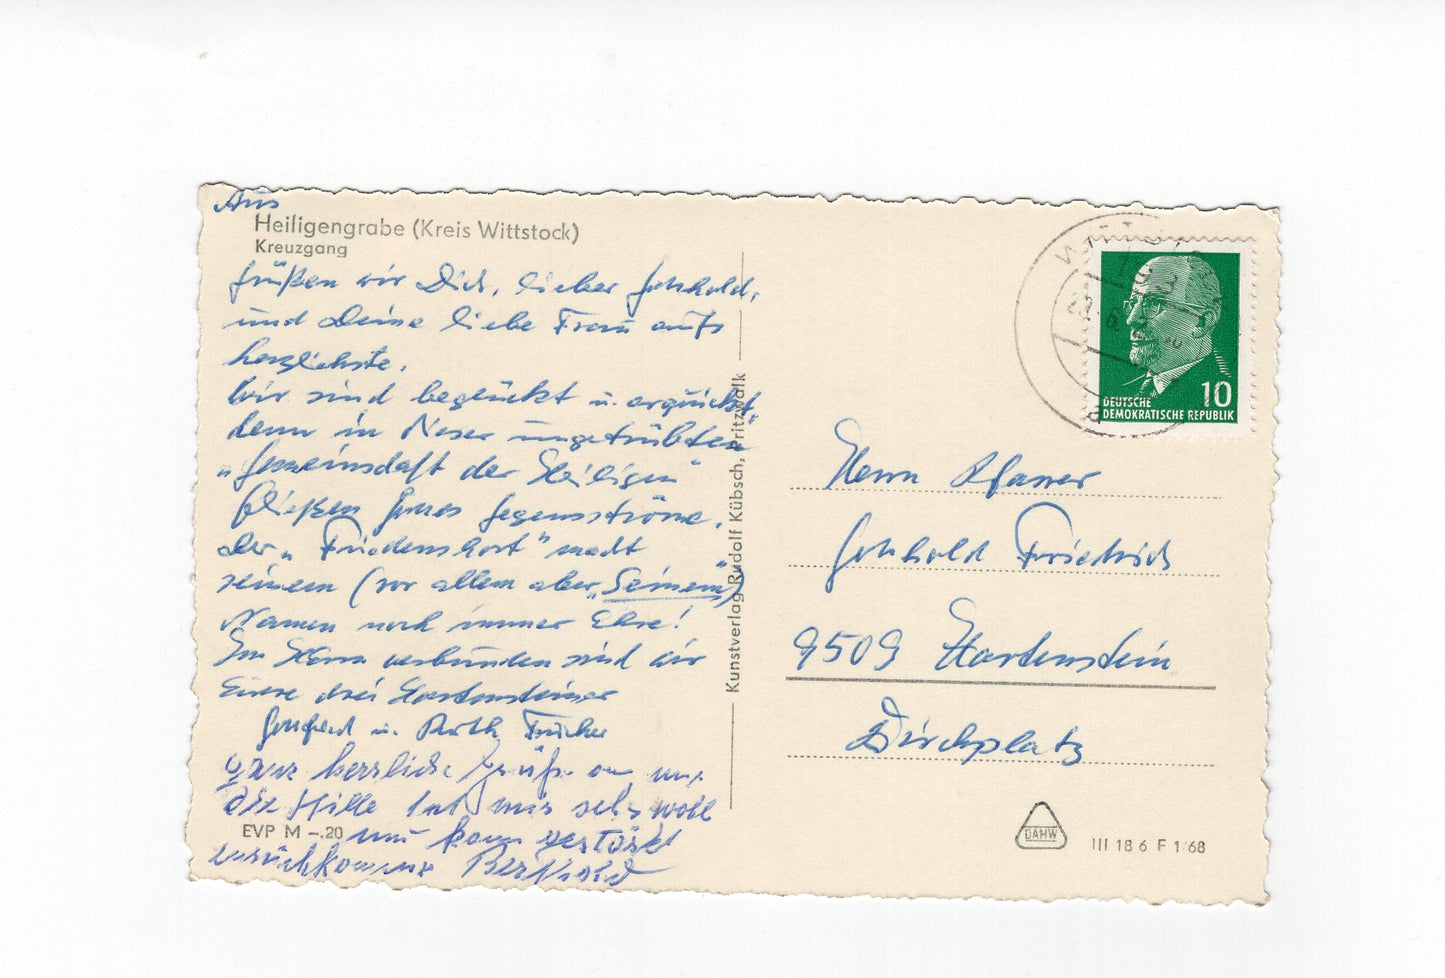 Aus
Heiligengrabe (Kreis Wittstock)
Kreuzgang
grüßen wir Dich, lieber Gotthold,
und Deine liebe Frau aufs
herzlichste.
Wir sind beglückt u. erquickt,
denn in dieser ungetrübten
„Gemeinschaft der Heiligen"
fließen Segensströme.
Der „Friedenshort" macht
seinem (vor allem aber „Seinem")
Namen noch immer Ehre!
Im Herrn verbunden sind wir
Eure drei Hartensteiner
Gottfried u. Ruth
herzliche Grüße
die Stille tut mir sehr wohl
EVP M –.20
und kann gestärkt
zurückkommen Berthold
Kunstverlag Rudolf Kübsch, Pritzwalk
DEUTSCHE
DEMOKRATISCHE REPUBLIK
10
Herrn Pfarrer
Gotthold Friedrich
9509 Hartenstein
Kirchplatz
DAMW
III 18 6 F 1/68